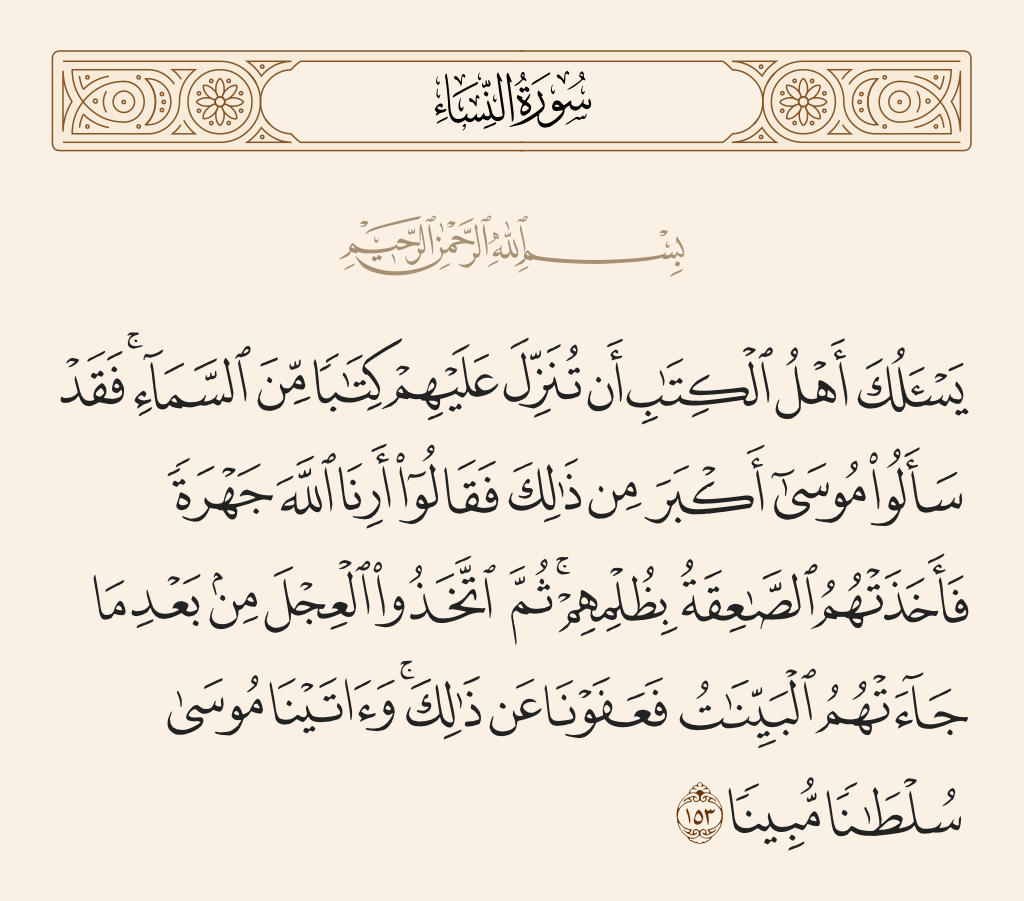 سُورَةُ النِّسَاءِ
بِسْمِ ٱللَّهِ ٱلرَّحْمَٰنِ ٱلرَّحِيمِ
يَسْـَٔلُكَ أَهْلُ ٱلْكِتَٰبِ أَن تُنَزِّلَ عَلَيْهِمْ كِتَٰبًا مِّنَ ٱلسَّمَآءِ ۚ فَقَدْ
سَأَلُوا۟ مُوسَىٰٓ أَكْبَرَ مِن ذَٰلِكَ فَقَالُوٓا۟ أَرِنَا ٱللَّهَ جَهْرَةً
فَأَخَذَتْهُمُ ٱلصَّٰعِقَةُ بِظُلْمِهِمْ ۚ ثُمَّ ٱتَّخَذُوا۟ ٱلْعِجْلَ مِنۢ بَعْدِ مَا
جَآءَتْهُمُ ٱلْبَيِّنَٰتُ فَعَفَوْنَا عَن ذَٰلِكَ ۚ وَءَاتَيْنَا مُوسَىٰ
سُلْطَٰنًا مُّبِينًا ١٥٣